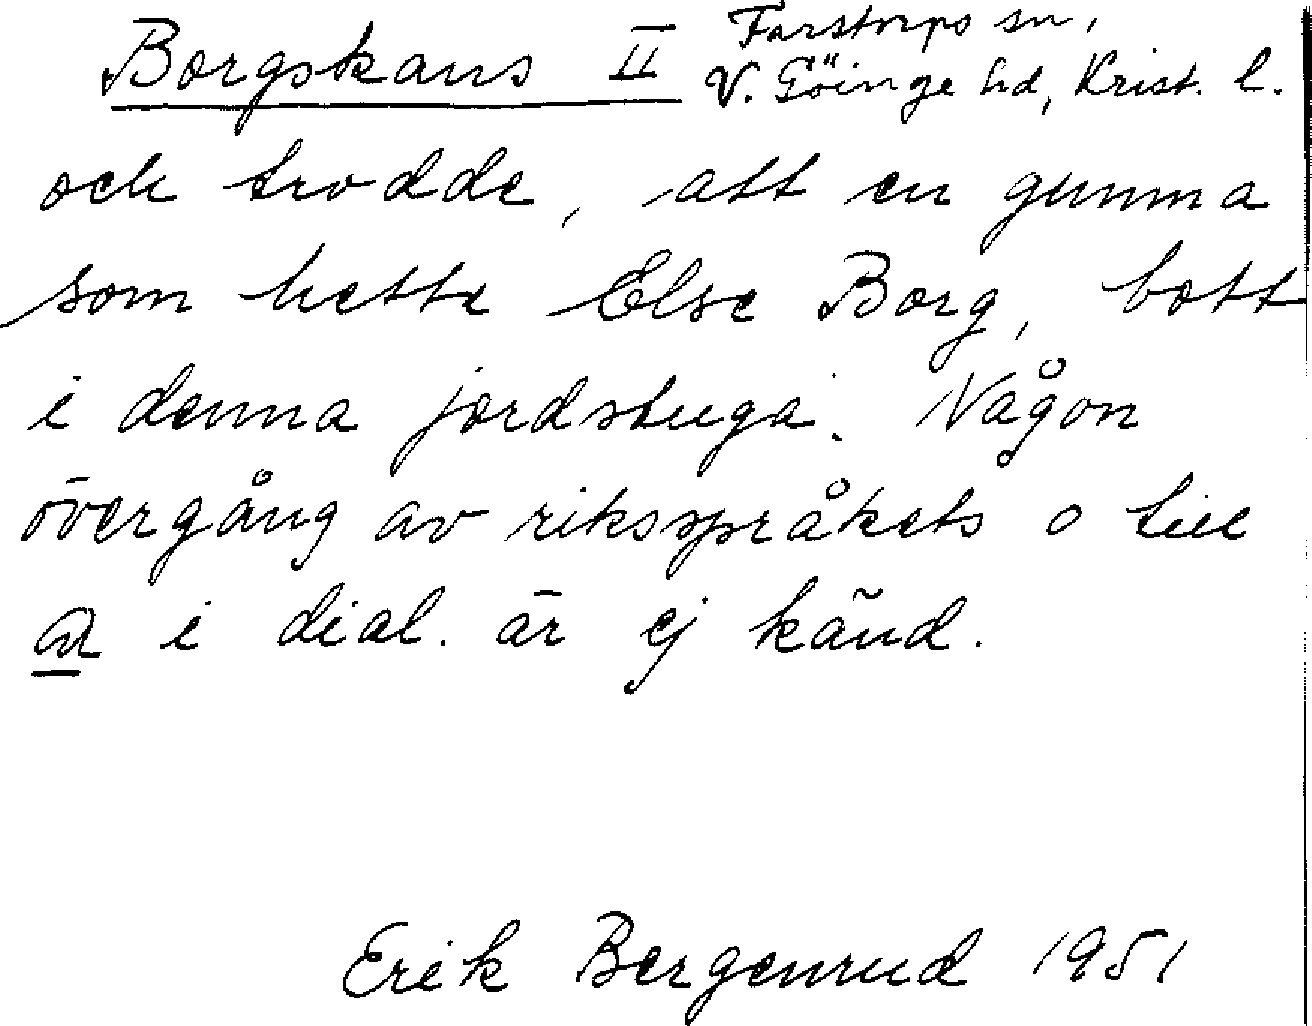 Borgskans II Farstorps sn,
V. Göinge hd, Krist. l.
och trodde, att en gumma
som hette Else Borg, bott
i denna jordstuga. Någon
övergång av riksspråkets o till
a i dial. är ej känd.
Erik Bergenrud 1951